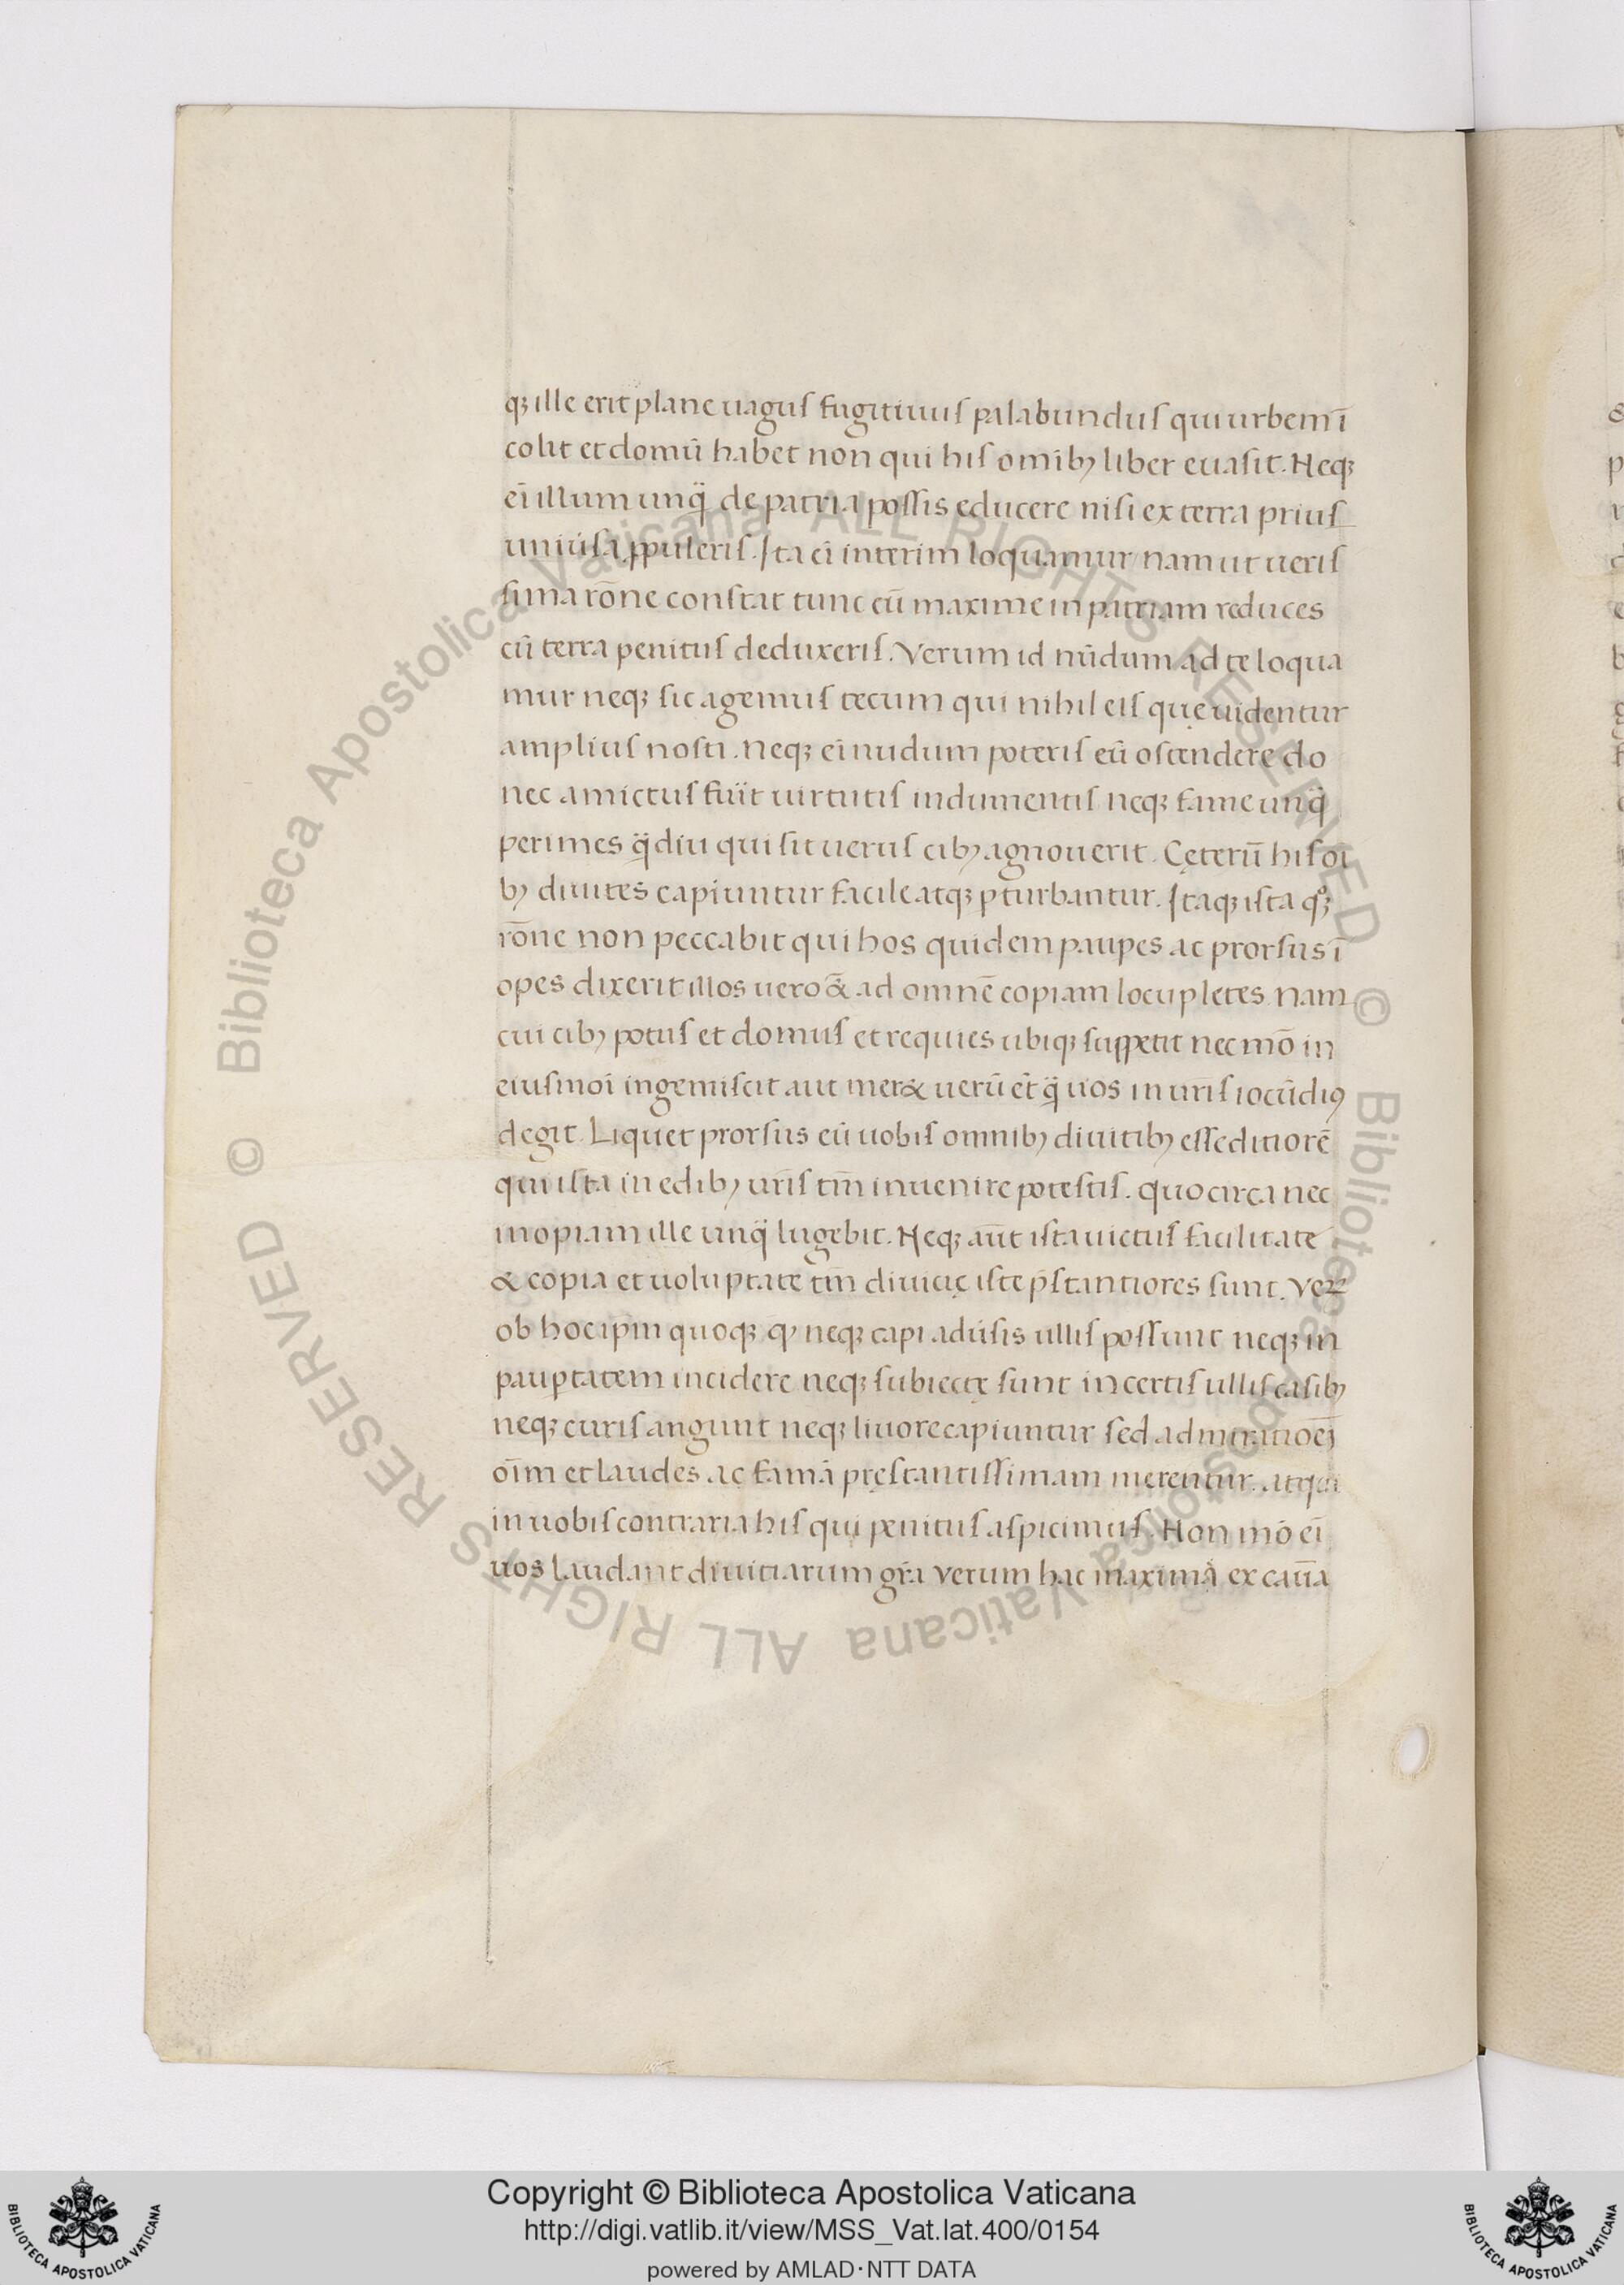 qꝫ ille erit plane uagus fugitiuus palabundus qui urbem ī
colit et domū habet non qui his omībꝫ liber euasit. Neqꝫ
eī illum unq̄ de patria possis educere nisi ex terra prius
uniūsa ꝓpuleris. Ita eī interim loquamur nam ut ueris
sima rōne constat tunc eū maxime in patriam reduces
cū terra penitus deduxeris. Verum id nūdum ad te loqua
mur neqꝫ sic agemus tecum qui nihil eis quę uidentur
amplius nosti. Neqꝫ eī nudum poteris eū ostendere do
nec amictus fuit uirtutis indumentis neqꝫ fame unq̄
perimes q̄diu qui sit uerus cibꝫ agnouerit. Cęterū his oī
bꝫ diuites capiuntur facile atqꝫ ꝑturbantur. Itaqꝫ ista
rōne non peccabit qui hos quidem pauꝑes ac prorsus ī
opes dixerit illos uero & ad omnē copiam locupletes. Nam
cui cibꝫ potus et domus et requies ubiqꝫ suppetit nec mō in
eiusmoī ingemiscit aut meret uerū et q̄ uos in ur̄is iocūdiꝰ
degit. Liquet prorsus eū uobis omnibꝫ diuitibꝫ esse ditiorē
qui ista in edibꝫ ur̄is tm̄ inuenire potestis. quocirca nec
inopiam ille unq̄ lugebit. Neqꝫ aūt ista uictus facilitate
& copia et uoluptate tm̄ diuicię iste p̄stantiores sunt. Veꝝ
ob hoc ip̄m quoqꝫ qꝫ neqꝫ capi adūsis ullis possunt neqꝫ in
pauꝑtatem incidere neqꝫ subiectę sunt incertis ullis casibꝫ
neqꝫ curis angunt neqꝫ liuore capiuntur sed admiratiōem
oīm et laudes ac famā pręstantissimam merentur. atqui
in uobis contraria his qui penitus aspicimus. Non mō eī
uos laudant diuitiarum gr̄a verum hac maximā ex cau̅a
Copyright © Biblioteca Apostolica Vaticana
http://digi.vatlib.it/view/MSS_Vat.lat.400/0154
powered by AMLAD·NTT DATA
BIBLIOTECA APOSTOLICA VATICANA
BIBLIOTECA APOSTOLICA VATICANA
© Biblioteca Apostolica Vaticana ALL RIGHTS RESERVED © Biblioteca Apostolica Vaticana ALL RIGHTS RESERVED